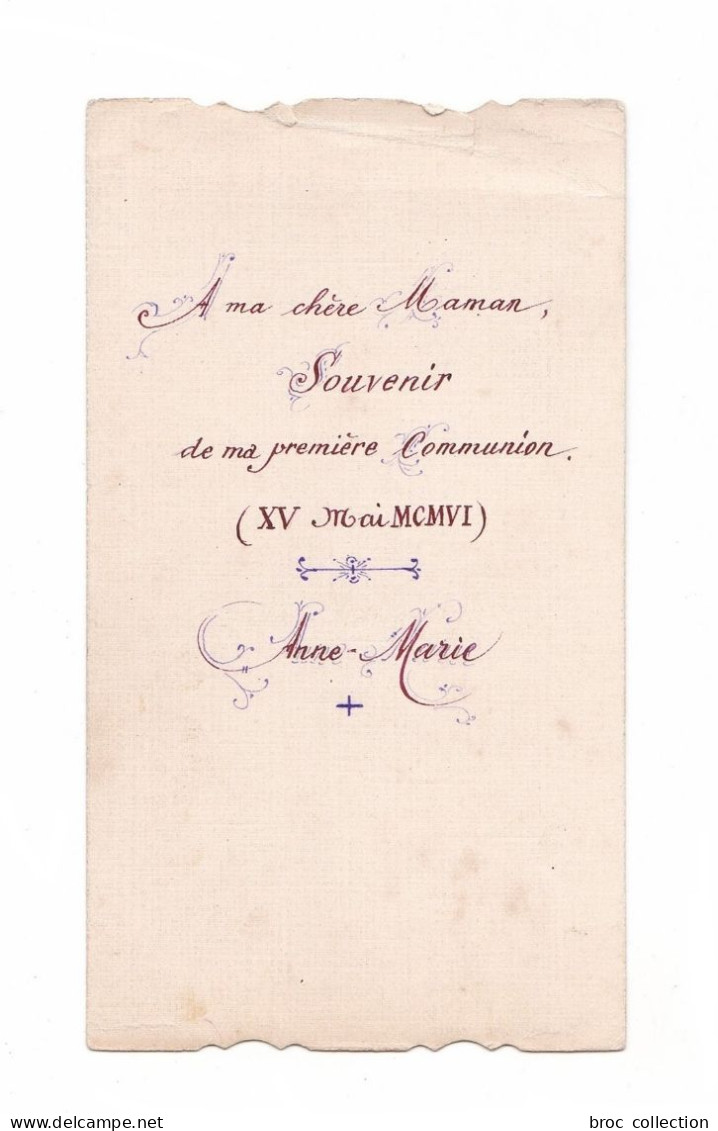 A ma chère Maman,
Souvenir
de ma première Communion.
(XV Mai MCMVI)
Anne-Marie
delcampe.net
broc collection